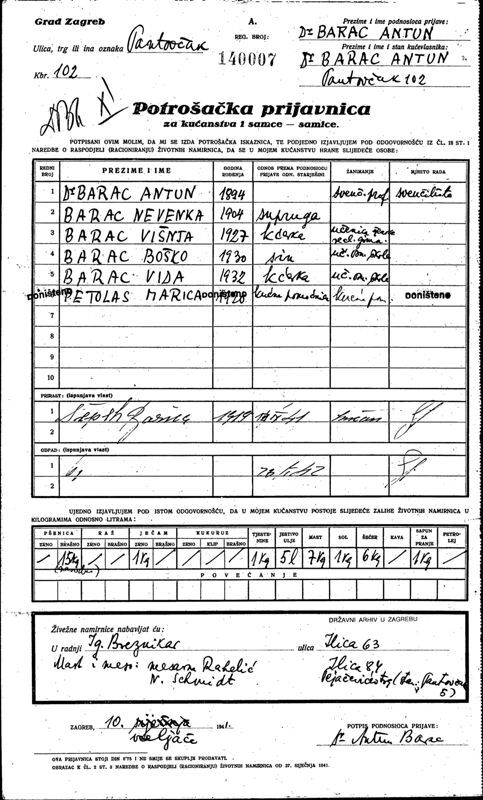 Grad Zagreb
Ulica, trg ili ina oznaka Pantovčak
Kbr. 102
A.
REG. BROJ:
140007
Prezime i ime podnosioca prijave:
Dr BARAC ANTUN
Prezime i ime i stan kućevlasnika:
Dr BARAC ANTUN
Pantovčak 102
XI
Potrošačka prijavnica
za kućanstva i samce — samice.
POTPISANI OVIM MOLIM, DA MI SE IZDA POTROŠAČKA ISKAZNICA, TE PODJEDNO IZJAVLJUJEM POD ODGOVORNOŠĆU IZ ČL. 18 ST. 1
NAREDBE O RASPODJELI (RACIONIRANJU) ŽIVOTNIH NAMIRNICA, DA SE U MOJEM KUĆANSTVU HRANE SLIJEDEĆE OSOBE:
REDNI BROJ PREZIME I IME GODINA ROĐENJA ODNOS PREMA PODNOSIOCU PRIJAVE ODN. STARJEŠINI ZANIMANJE MJESTO RADA
1 Dr BARAC ANTUN 1894 sveuč. prof. sveučilište
2 BARAC NEVENKA 1904 supruga
3 BARAC VIŠNJA 1927 kćerka učenica
4 BARAC BOŠKO 1930 sin uč. škole
5 BARAC VIDA 1932 kćerka uč. škole
poništeno BETOLAS MARICA poništeno kućna pomoćnica poništeno
7
8
9
10
PRIRAST: (ispunjava vlast)
1 1919
2
ODPAD: (ispunjava vlast)
1
2
UJEDNO IZJAVLJUJEM POD ISTOM ODGOVORNOŠĆU, DA U MOJEM KUĆANSTVU POSTOJE SLIJEDEĆE ZALIHE ŽIVOTNIH NAMIRNICA U
KILOGRAMIMA ODNOSNO LITRAMA:
PŠENICA RAŽ JEČAM KUKURUZ TJESTENINE JESTIVO ULJE MAST SOL ŠEĆER KAVA SAPUN ZA PRANJE PETROLEJ
ZRNO BRAŠNO ZRNO BRAŠNO ZRNO BRAŠNO ZRNO KLIP BRAŠNO
/ 15kg / / 1kg / / / / 1kg 5l 7kg 1kg 6kg / 1kg /
POVEĆANJE
DRŽAVNI ARHIV U ZAGREBU
Živežne namirnice nabavljat ću:
U radnji Ig. Breznikar ulica Ilica 63
Mast i meso: mesarna Rahelić Ilica 84
N. Schmidt
ZAGREB, 10. veljače 1941.
POTPIS PODNOSIOCA PRIJAVE:
Dr Antun Barac
OVA PRIJAVNICA STOJI DIN 0'75 I NE SMIJE SE SKUPLJE PRODAVATI.
OBRAZAC K ČL. 2 ST. 3 NAREDBE O RASPODJELI (RACIONIRANJU) ŽIVOTNIH NAMIRNICA OD 27. SIJEČNJA 1941.